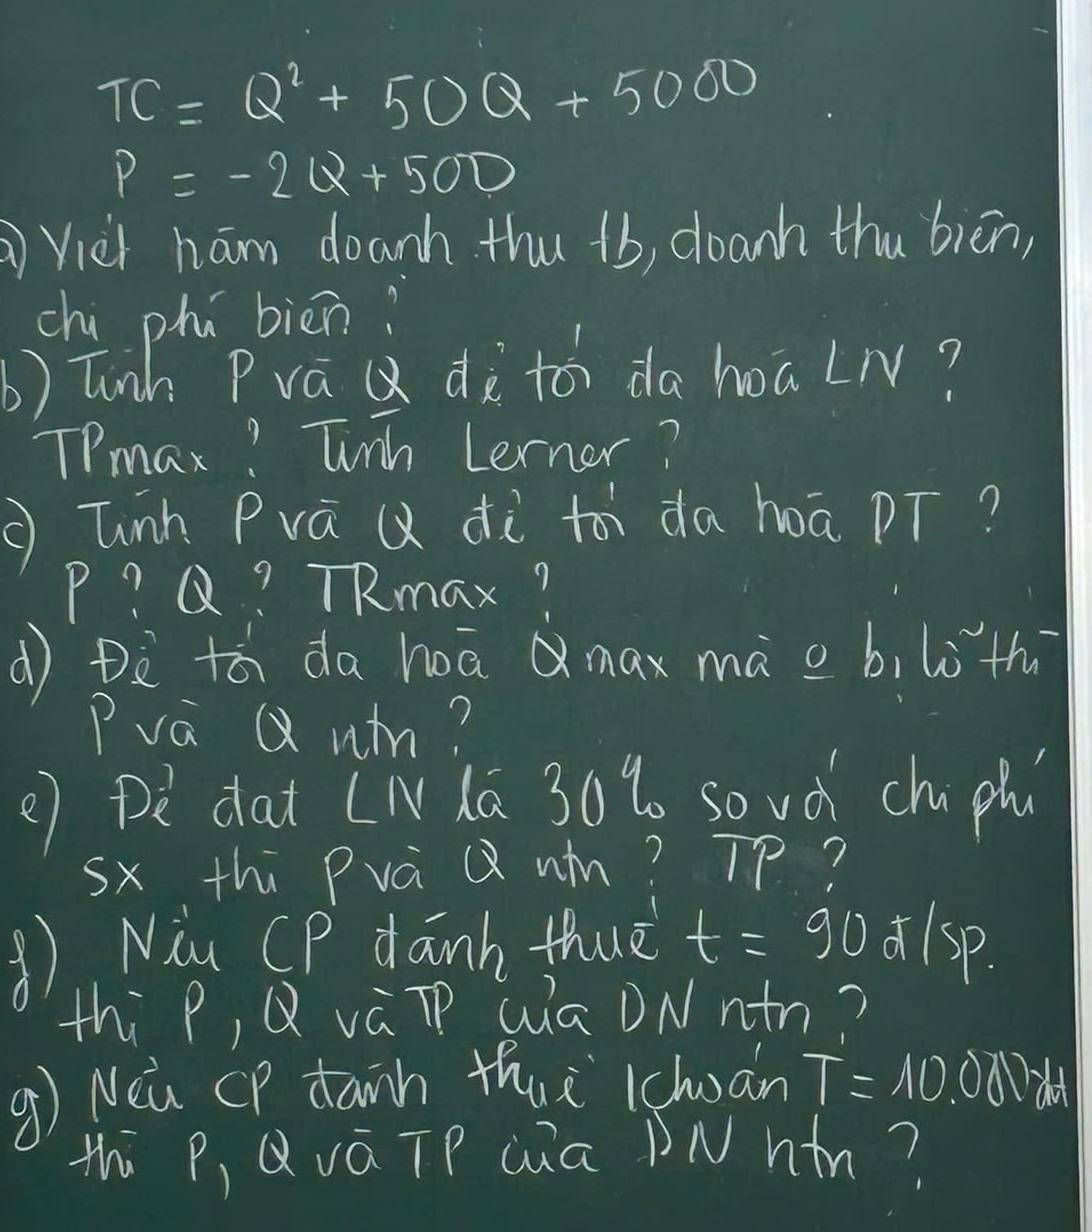 TC = Q² + 50Q + 5000
P = -2Q + 500
a) Viết hàm doanh thu tb, doanh thu biên,
chi phí biên?
b) Tính P và Q để tối đa hoá LN?
TPmax? Tính Lerner?
c) Tính P và Q để tối đa hoá DT?
P? Q? TRmax?
d) Để tối đa hoá Qmax mà o bị lỗ thì
P và Q ntn?
e) Để đạt LN là 30% so với chi phí
sx thì P và Q ntn? TP?
f) Nếu CP đánh thuế t = 90đ/sp.
thì P, Q và TP của DN ntn?
g) Nếu CP đánh thuế khoán T = 10.000đvt
thì P, Q và TP của DN ntn?